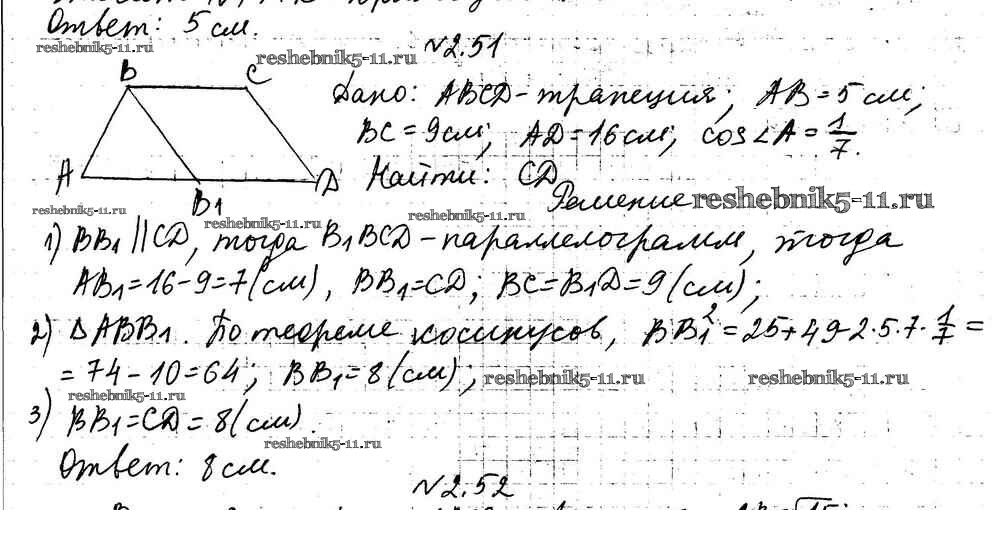 Ответ: 5 см.
reshebnik5-11.ru
reshebnik5-11.ru
№2.51
B C
Дано: ABCD-трапеция; AB=5 см;
BC=9см; AD=16см; cos∠A=1/7.
A B1 D
Найти: CD
reshebnik5-11.ru
reshebnik5-11.ru
Решение
reshebnik5-11.ru
1) BB1 || CD, тогда B1BCD-параллелограмм, тогда
AB1=16-9=7(см), BB1=CD; BC=B1D=9(см);
2) ΔABB1. По теореме косинусов, BB1²=25+49-2·5·7·1/7=
=74-10=64; BB1=8(см);
reshebnik5-11.ru
reshebnik5-11.ru
reshebnik5-11.ru
3) BB1=CD=8(см).
reshebnik5-11.ru
Ответ: 8см.
№2.52